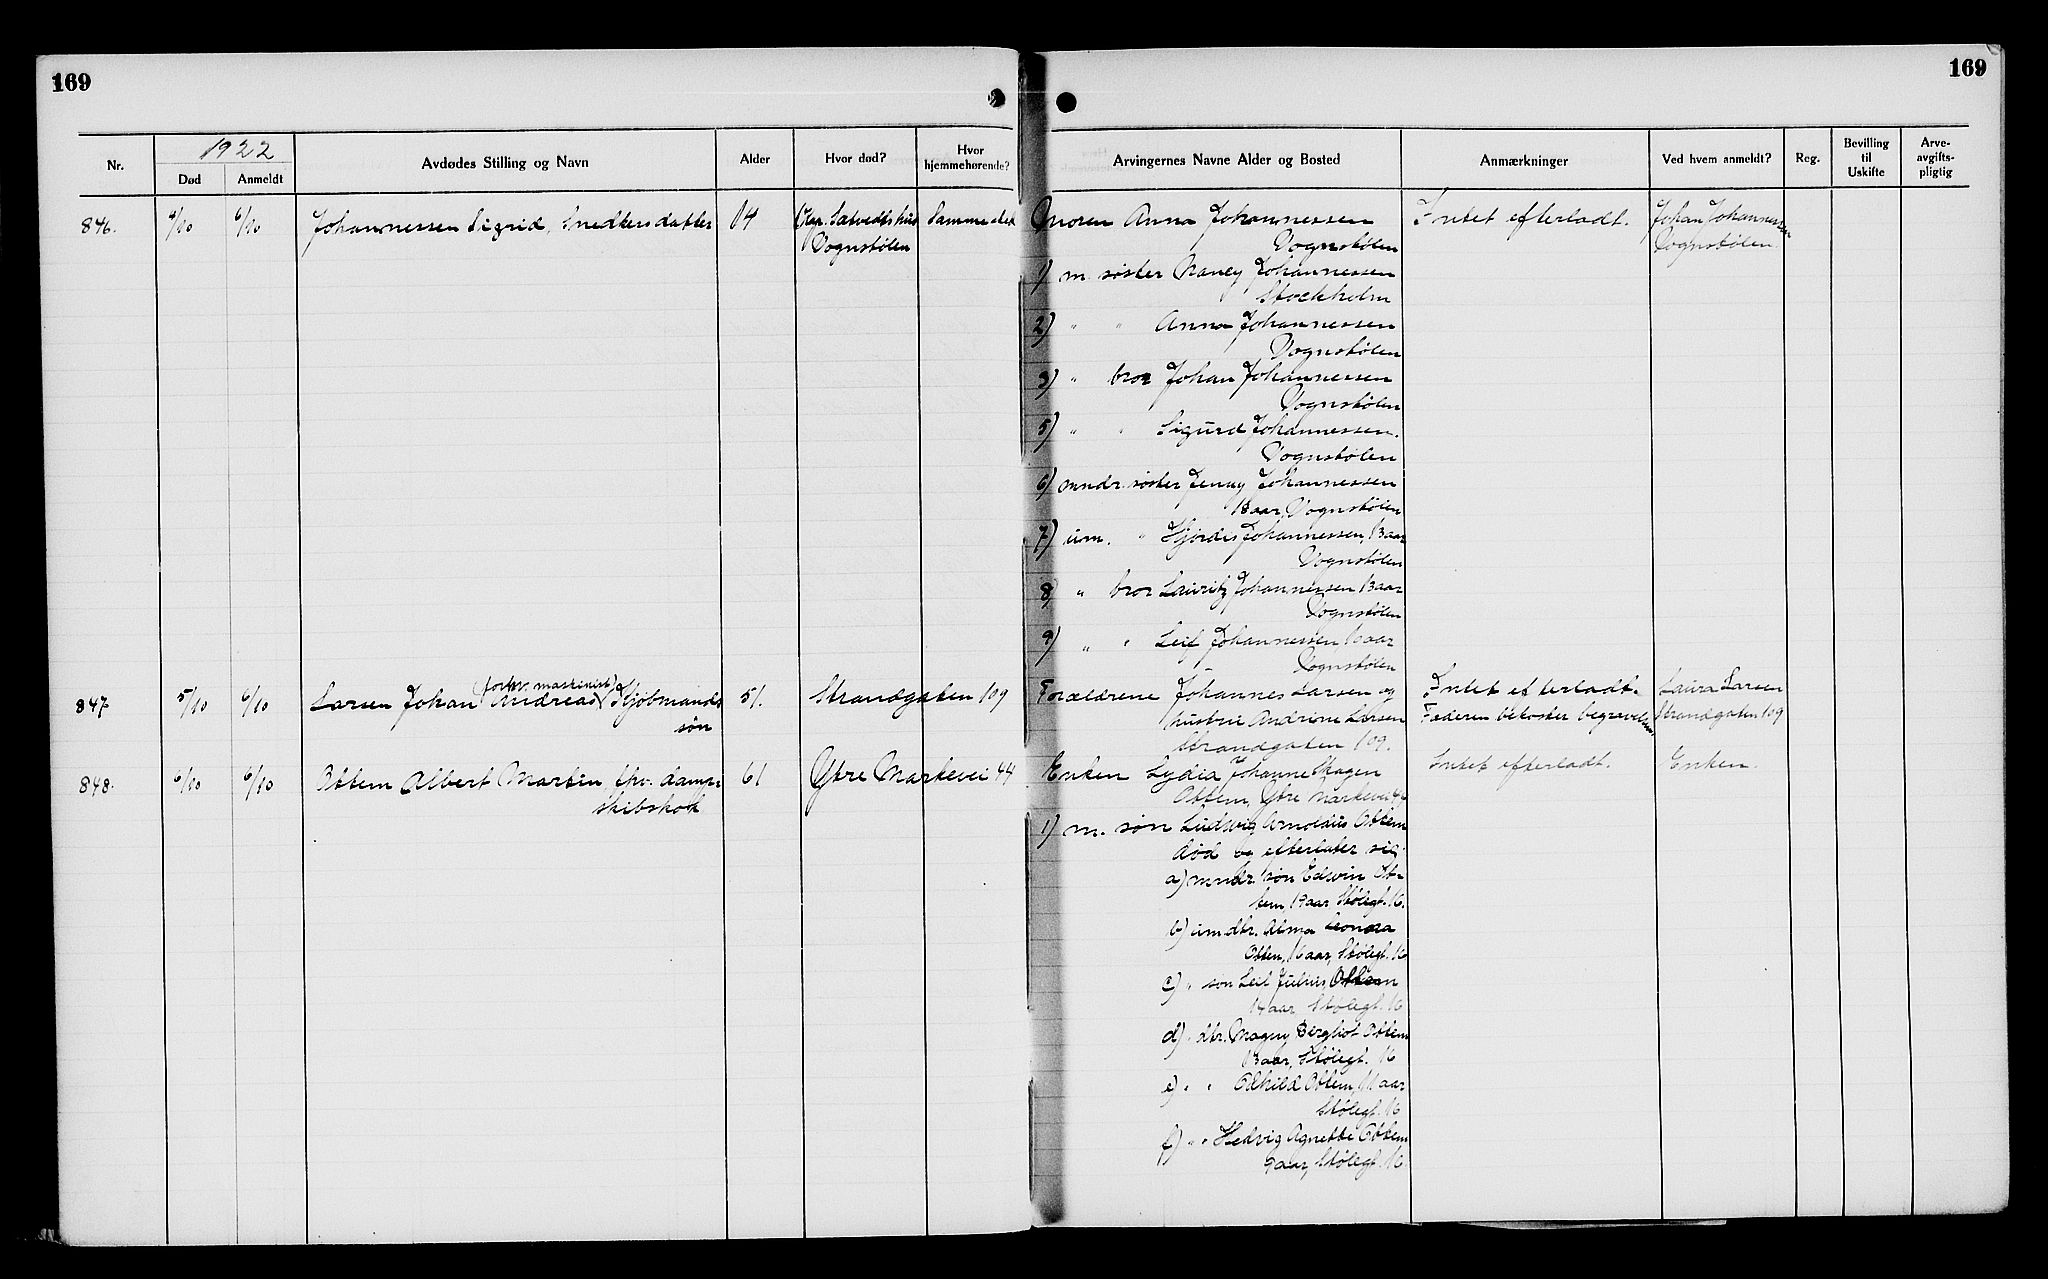 169
169
Nr.
1922
Død
Anmeldt
Avdødes Stilling og Navn
Alder
Hvor død?
Hvor hjemmehørende?
Arvingernes Navne Alder og Bosted
Anmærkninger
Ved hvem anmeldt?
Reg.
Bevilling til Uskifte
Arve-avgifts-pligtig
846. 4/10 6/10 Johannessen Sigrid, Snedkersdatter 14 Sammested
Vognstølen
Moren Anna Johannessen
Vognstølen
Intet efterladt.
Johan Johannessen
Vognstølen.
1) m. søster Nancy Johannessen
Stockholm
2) " " Anna Johannessen
Vognstølen
3) " bror Johan Johannessen
Vognstølen
5) " " Sigurd Johannessen.
Vognstølen
6) mndr. søster Jenny Johannessen
18 aar, Vognstølen
7) um. " Hjørdis Johannessen, 13 aar
Vognstølen
8) " bror Lauritz Johannessen 13 aar
Vognstølen
9) " " Leif Johannessen 10 aar
Vognstølen
847 5/10 6/10 Larsen Johan Andreas (forhv. maskinist) Kjøbmands
søn
51. Strandgaten 109
Forældrene Johannes Larsen og
hustru Andrine Larsen
Strandgaten 109.
Intet efterladt.
Faderen bekoster begravelsen
Laura Larsen
Strandgaten 109
848. 6/10 6/10 Ottem Albert Martin, fhv. damp-
skibskok
61 Ytre Markevei 44
Enken Lydia Johanne Skagen
Ottem, Ytre Markevei 44
Intet efterladt.
Enken.
1) m. søn Ludvig Arnoldus Ottem
død og efterlater sig:
a) mndr. søn Edwin Ot-
tem, 19 aar Stølegt. 16.
b) um. dtr. Alma Leonora
Ottem, 16 aar, Stølegt. 16
c) " søn Leif Julius Ottem
14 aar Stølegt. 16
d) " dtr. Magny Bergliot Ottem
13 aar, Stølegt. 16
e) " " Ottem, 11 aar
Stølegt. 16
f) " " Hedvig Agnette Ottem
9 aar, Stølegt. 16.